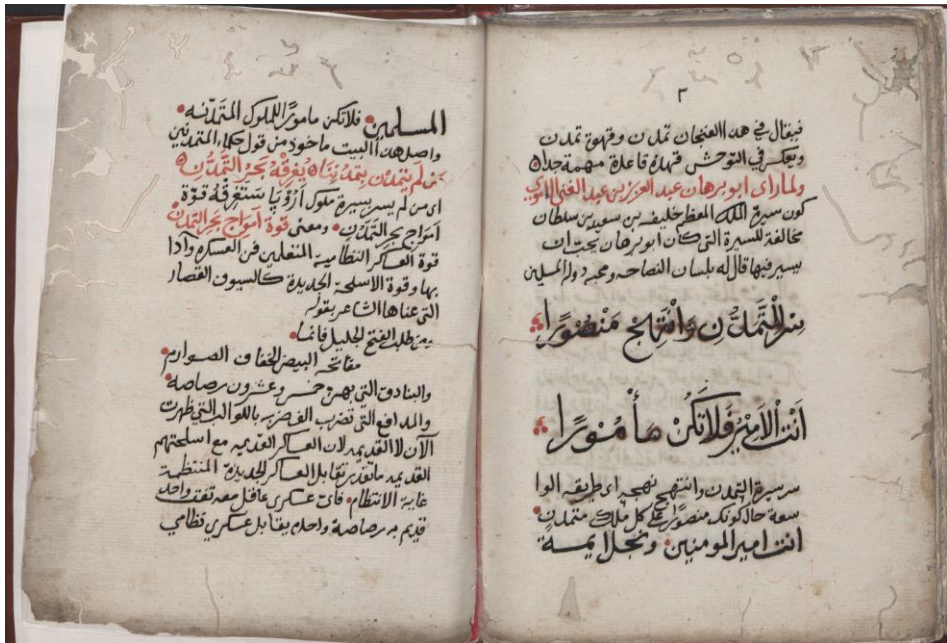 ٢
فيقال في هذا الفنجان تمدن وقهوة تمدن
وبعكس في التوحش فهذه قاعدة مهمة جدا
ولما راى ابو برهان عبد العزيز بن عبد الغني
كون سيرة الملك المعظم خليفه بن سعيد بن سلطان
مخالفة للسيرة التي كان ابو برهان يحب ان
يسير فيها قال له بلسان النصاحه ومحبة دولة المسلمين
سر للتمدن وانتهج منصورا
انت الامير فلا تكن مأمورا
سر سيرة التمدن وانتهج نهجه اي طريقه الوا
سعة حال كونك منصورا على كل ملك متمدن
انت امير المومنين ونجل ايمة
المسلمين فلا تكن مامورا للملوك المتمدنه
واصل هذا البيت ماخوذ من قول حكماء المتمدنين
من لم يتمدن بتمدننا يغرقه بحر التمدن
اي من لم يسر بسيرة ملوك اروپا ستغرقه قوة
امواج بحر التمدن ومعنى قوة امواج بحر التمدن
قوة العساكر النظامية المتعلمين فن العسكره وآدا
بها وقوة الاسلحة الجديدة كالسيوف القصار
التي عناها الشاعر بقوله
من طلب الفتح الجليل فانما
مفاتحه البيض الخفاف الصوارم
والبنادق التي بهرة خمس وعشرون رصاصة
والمدافع التي تضرب القنصر باللوالب التي ظهرت
الآن لا القديمه لان العساكر القديمه مع اسلحتهم
القديمه ما تقدر تقابل العساكر الجديدة المنتظمة
غاية الانتظام فاي عسكري عاقل معه تفق واحد
قديم به رصاصة واحدة يقابل عسكري نظامي